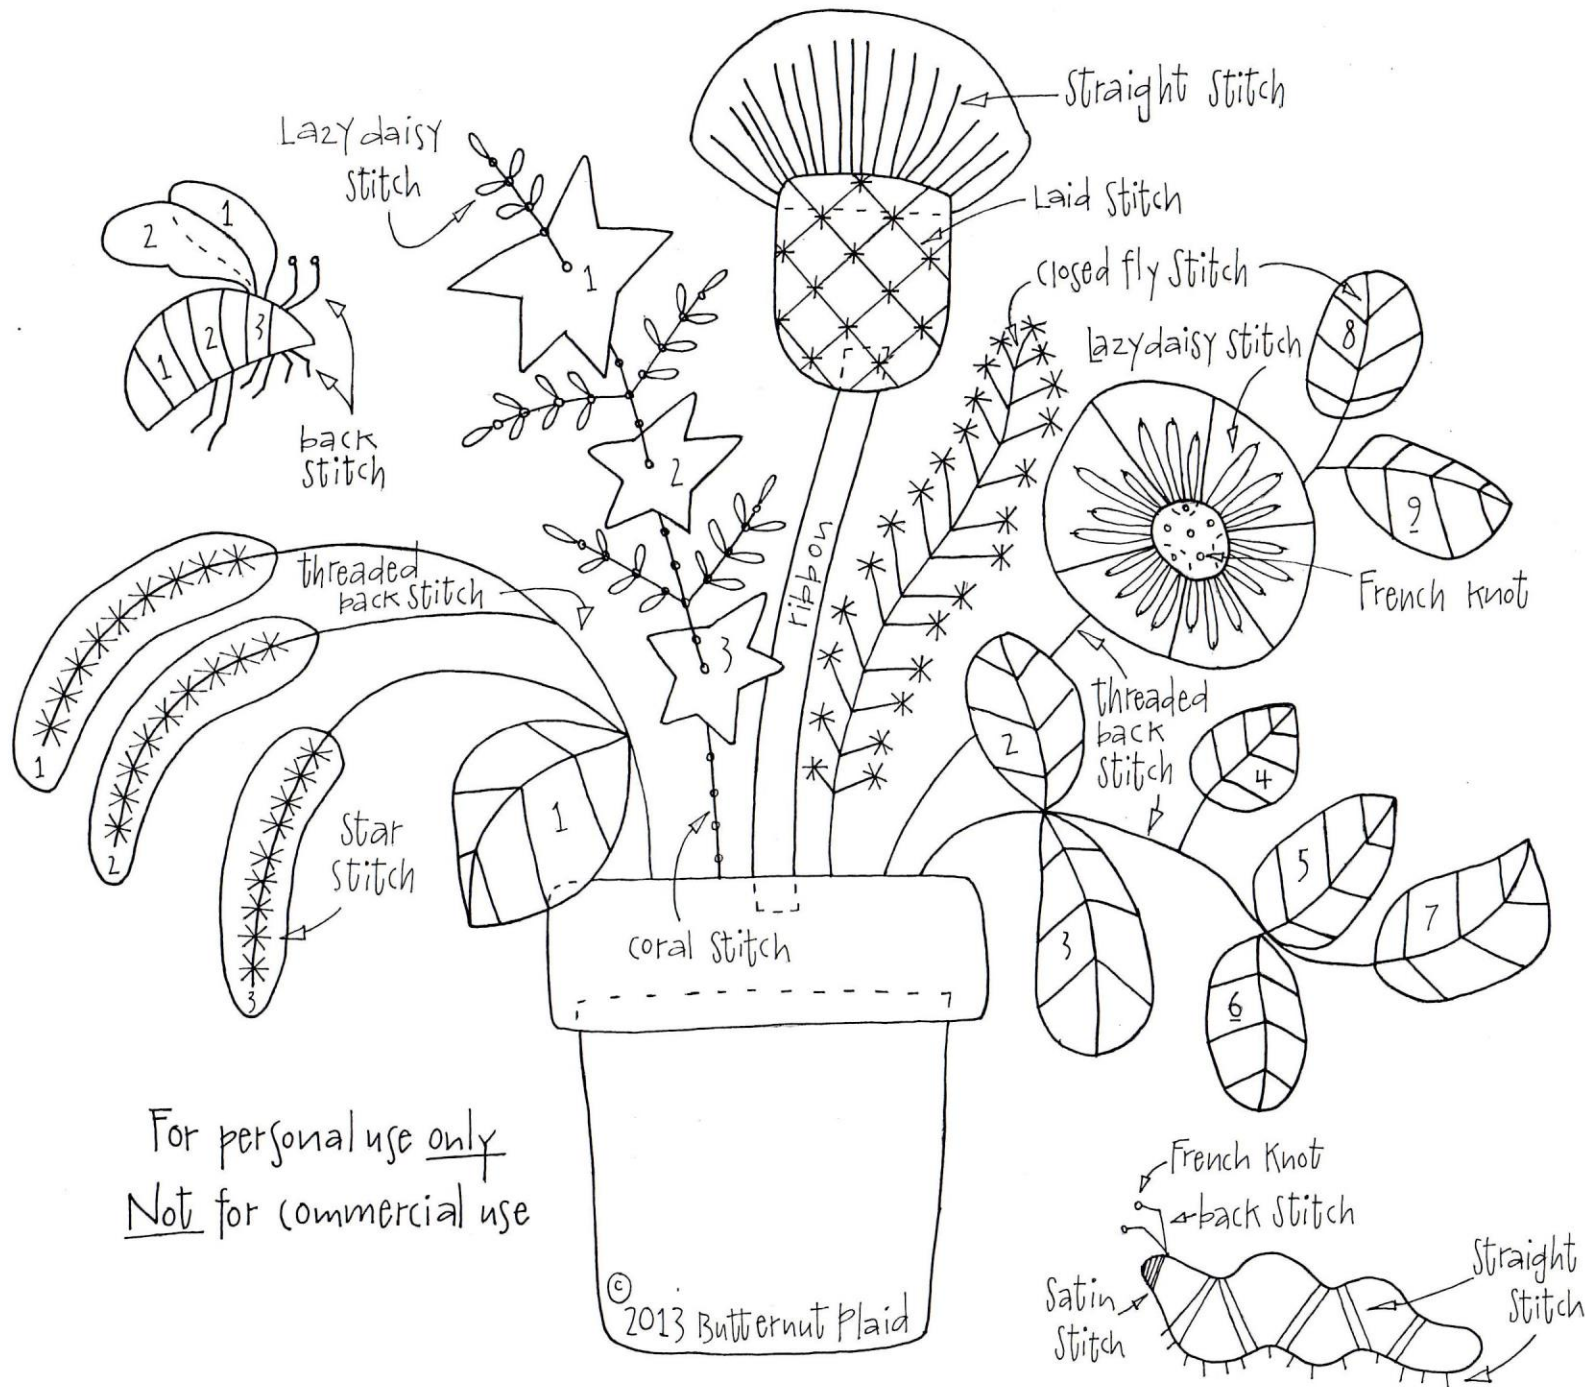 Straight Stitch
Lazy daisy
Stitch
Laid Stitch
closed fly Stitch
Lazy daisy Stitch
1
2
1
2
3
back
Stitch
1
2
3
8
9
French Knot
threaded
back stitch
ribbon
threaded
back
Stitch
1
2
3
Star
Stitch
1
2
3
4
5
6
7
coral Stitch
For personal use only
Not for commercial use
© 2013 Butternut Plaid
French Knot
back Stitch
Satin
Stitch
Straight
Stitch